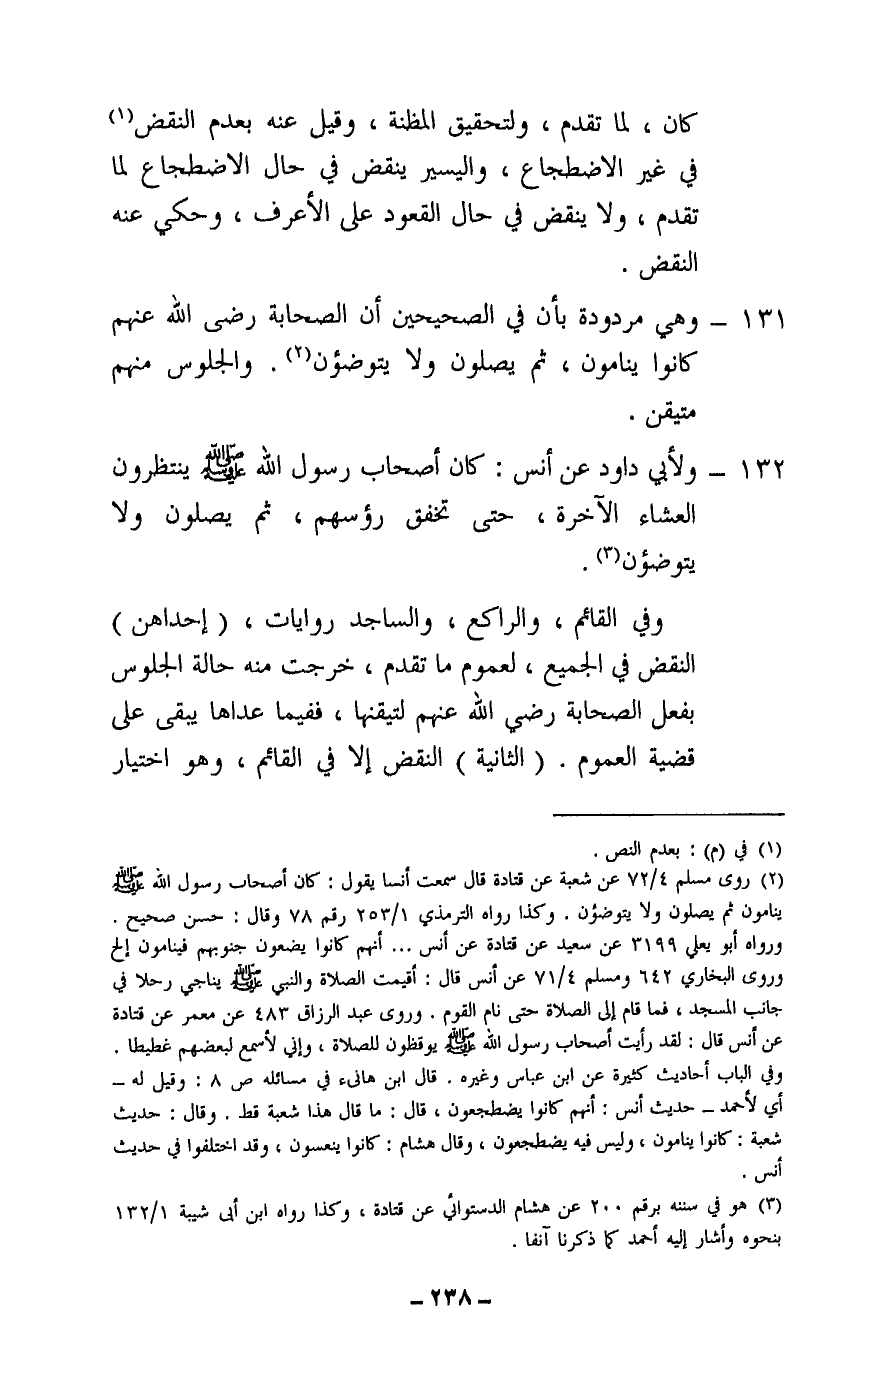 كان ، لما تقدم ، ولتحقيق المظنة ، وقيل عنه بعدم النقض(١)
في غير الاضطجاع ، واليسير ينقض في حال الاضطجاع لما
تقدم ، ولا ينقض في حال القعود على الأعرف ، وحكي عنه
النقض .
١٣١ – وهي مردودة بأن في الصحيحين أن الصحابة رضى الله عنهم
كانوا ينامون ، ثم يصلون ولا يتوضؤن(٢) . والجلوس منهم
متيقن .
١٣٢ – ولأبي داود عن أنس : كان أصحاب رسول الله ﷺ ينتظرون
العشاء الآخرة ، حتى تخفق رؤسهم ، ثم يصلون ولا
يتوضؤن(٣) .
وفي القائم ، والراكع ، والساجد روايات ، ( إحداهن )
النقض في الجميع ، لعموم ما تقدم ، خرجت منه حالة الجلوس
بفعل الصحابة رضي الله عنهم لتيقنها ، ففيما عداها يبقى على
قضية العموم . ( الثانية ) النقض إلا في القائم ، وهو اختيار
(١) في (م) : بعدم النص .
(٢) روى مسلم ٧٢/٤ عن شعبة عن قتادة قال سمعت أنسا يقول : كان أصحاب رسول الله ﷺ
ينامون ثم يصلون ولا يتوضؤن . وكذا رواه الترمذي ٢٥٣/١ رقم ٧٨ وقال : حسن صحيح .
ورواه أبو يعلي ٣١٩٩ عن سعيد عن قتادة عن أنس ... أنهم كانوا يضعون جنوبهم فينامون إلخ
وروى البخاري ٦٤٢ ومسلم ٧١/٤ عن أنس قال : أقيمت الصلاة والنبي ﷺ يناجي رحلا في
جانب المسجد ، فما قام إلى الصلاة حتى نام القوم . وروى عبد الرزاق ٤٨٣ عن معمر عن قتادة
عن أنس قال : لقد رأيت أصحاب رسول الله ﷺ يوقظون للصلاة ، وإني لأسمع لبعضهم غطيطا .
وفي الباب أحاديث كثيرة عن ابن عباس وغيره . قال ابن هانىء في مسائله ص ٨ : وقيل له –
أي لأحمد – حديث أنس : أنهم كانوا يضطجعون ، قال : ما قال هذا شعبة قط . وقال : حديث
شعبة : كانوا ينامون ، وليس فيه يضطجعون ، وقال هشام : كانوا ينعسون ، وقد اختلفوا في حديث
أنس .
(٣) هو في سننه برقم ٢٠٠ عن هشام الدستوائي عن قتادة ، وكذا رواه ابن أبى شيبة ١٣٢/١
بنحوه وأشار إليه أحمد كما ذكرنا آنفا .
– ٢٣٨ –